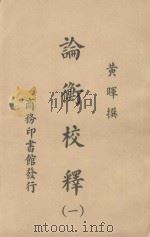 黃暉撰
論衡校釋
(一)
商務印書館發行